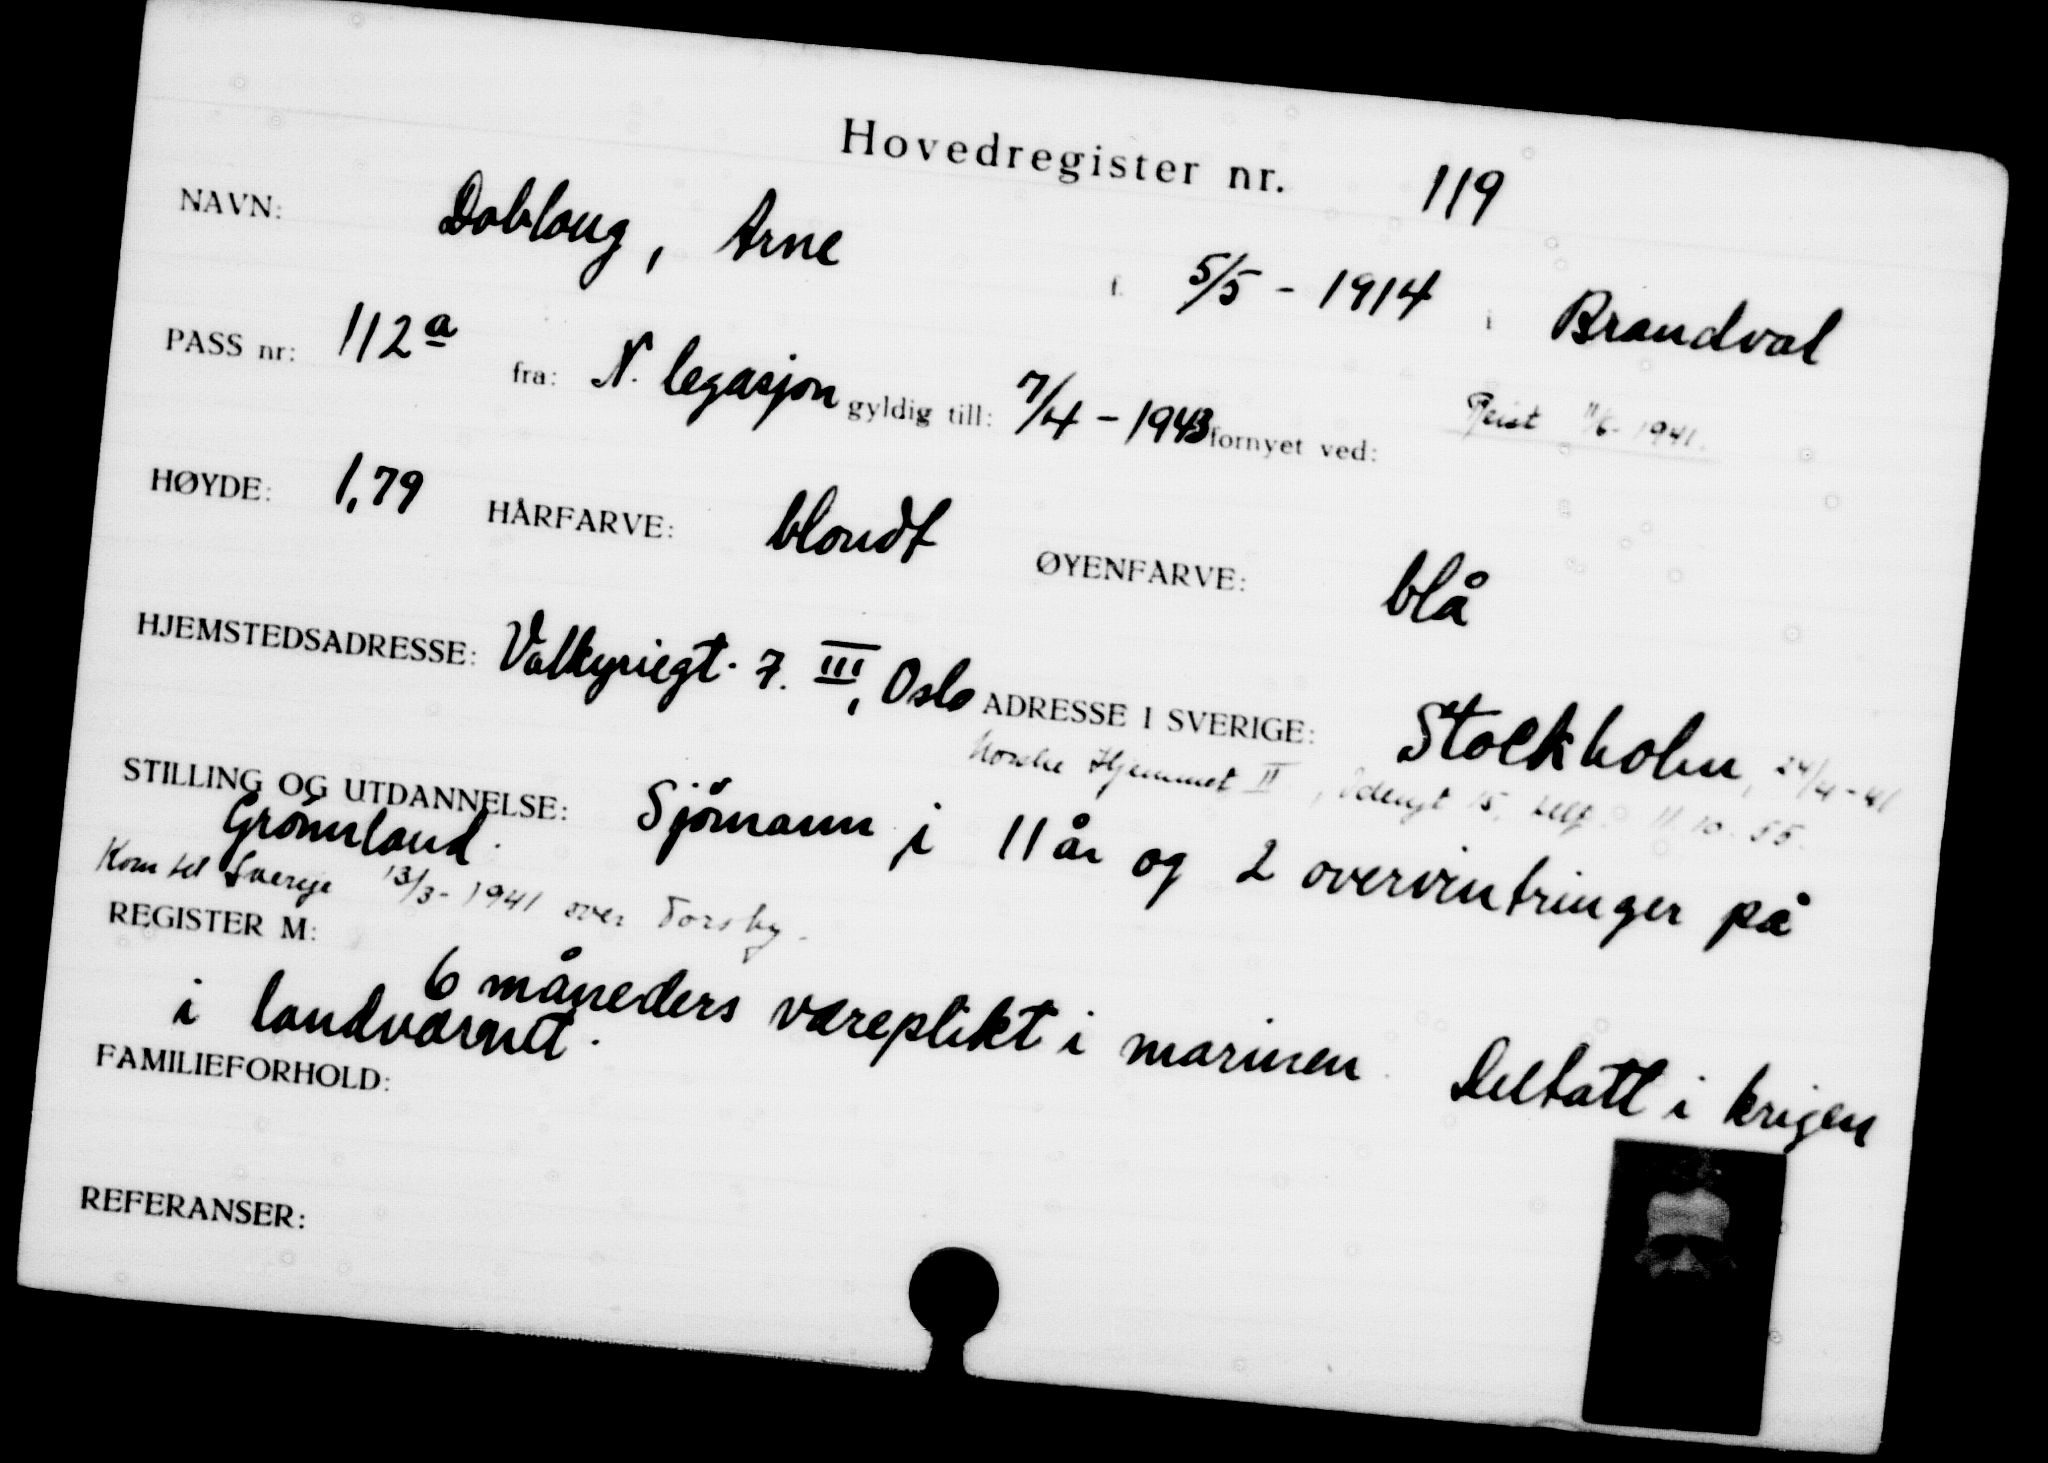 Hovedregister nr. 119
NAVN: Dobloug, Arne f. 5/5 - 1914 i Brandval
PASS nr: 112 a fra: N. legasjon gyldig till: 7/4 - 1943 fornyet ved: Reist 11/6 - 1941.
HØYDE: 1,79 HÅRFARVE: blondt ØYENFARVE: blå
HJEMSTEDSADRESSE: Valkyriegt. 7. III, Oslo ADRESSE I SVERIGE: Stockholm, 24/4 - 41
Norske Hjemmet II, 15, 11 10 55.
STILLING OG UTDANNELSE: Sjömann i 11 år og 2 overvintringer på
Grönnland.
Kom til Sverge 13/3 - 1941 over Torsby.
REGISTER M: 6 måneders værеplikt i marinen. Deltatt i krigen
i landværnet.
FAMILIEFORHOLD:
REFERANSER: